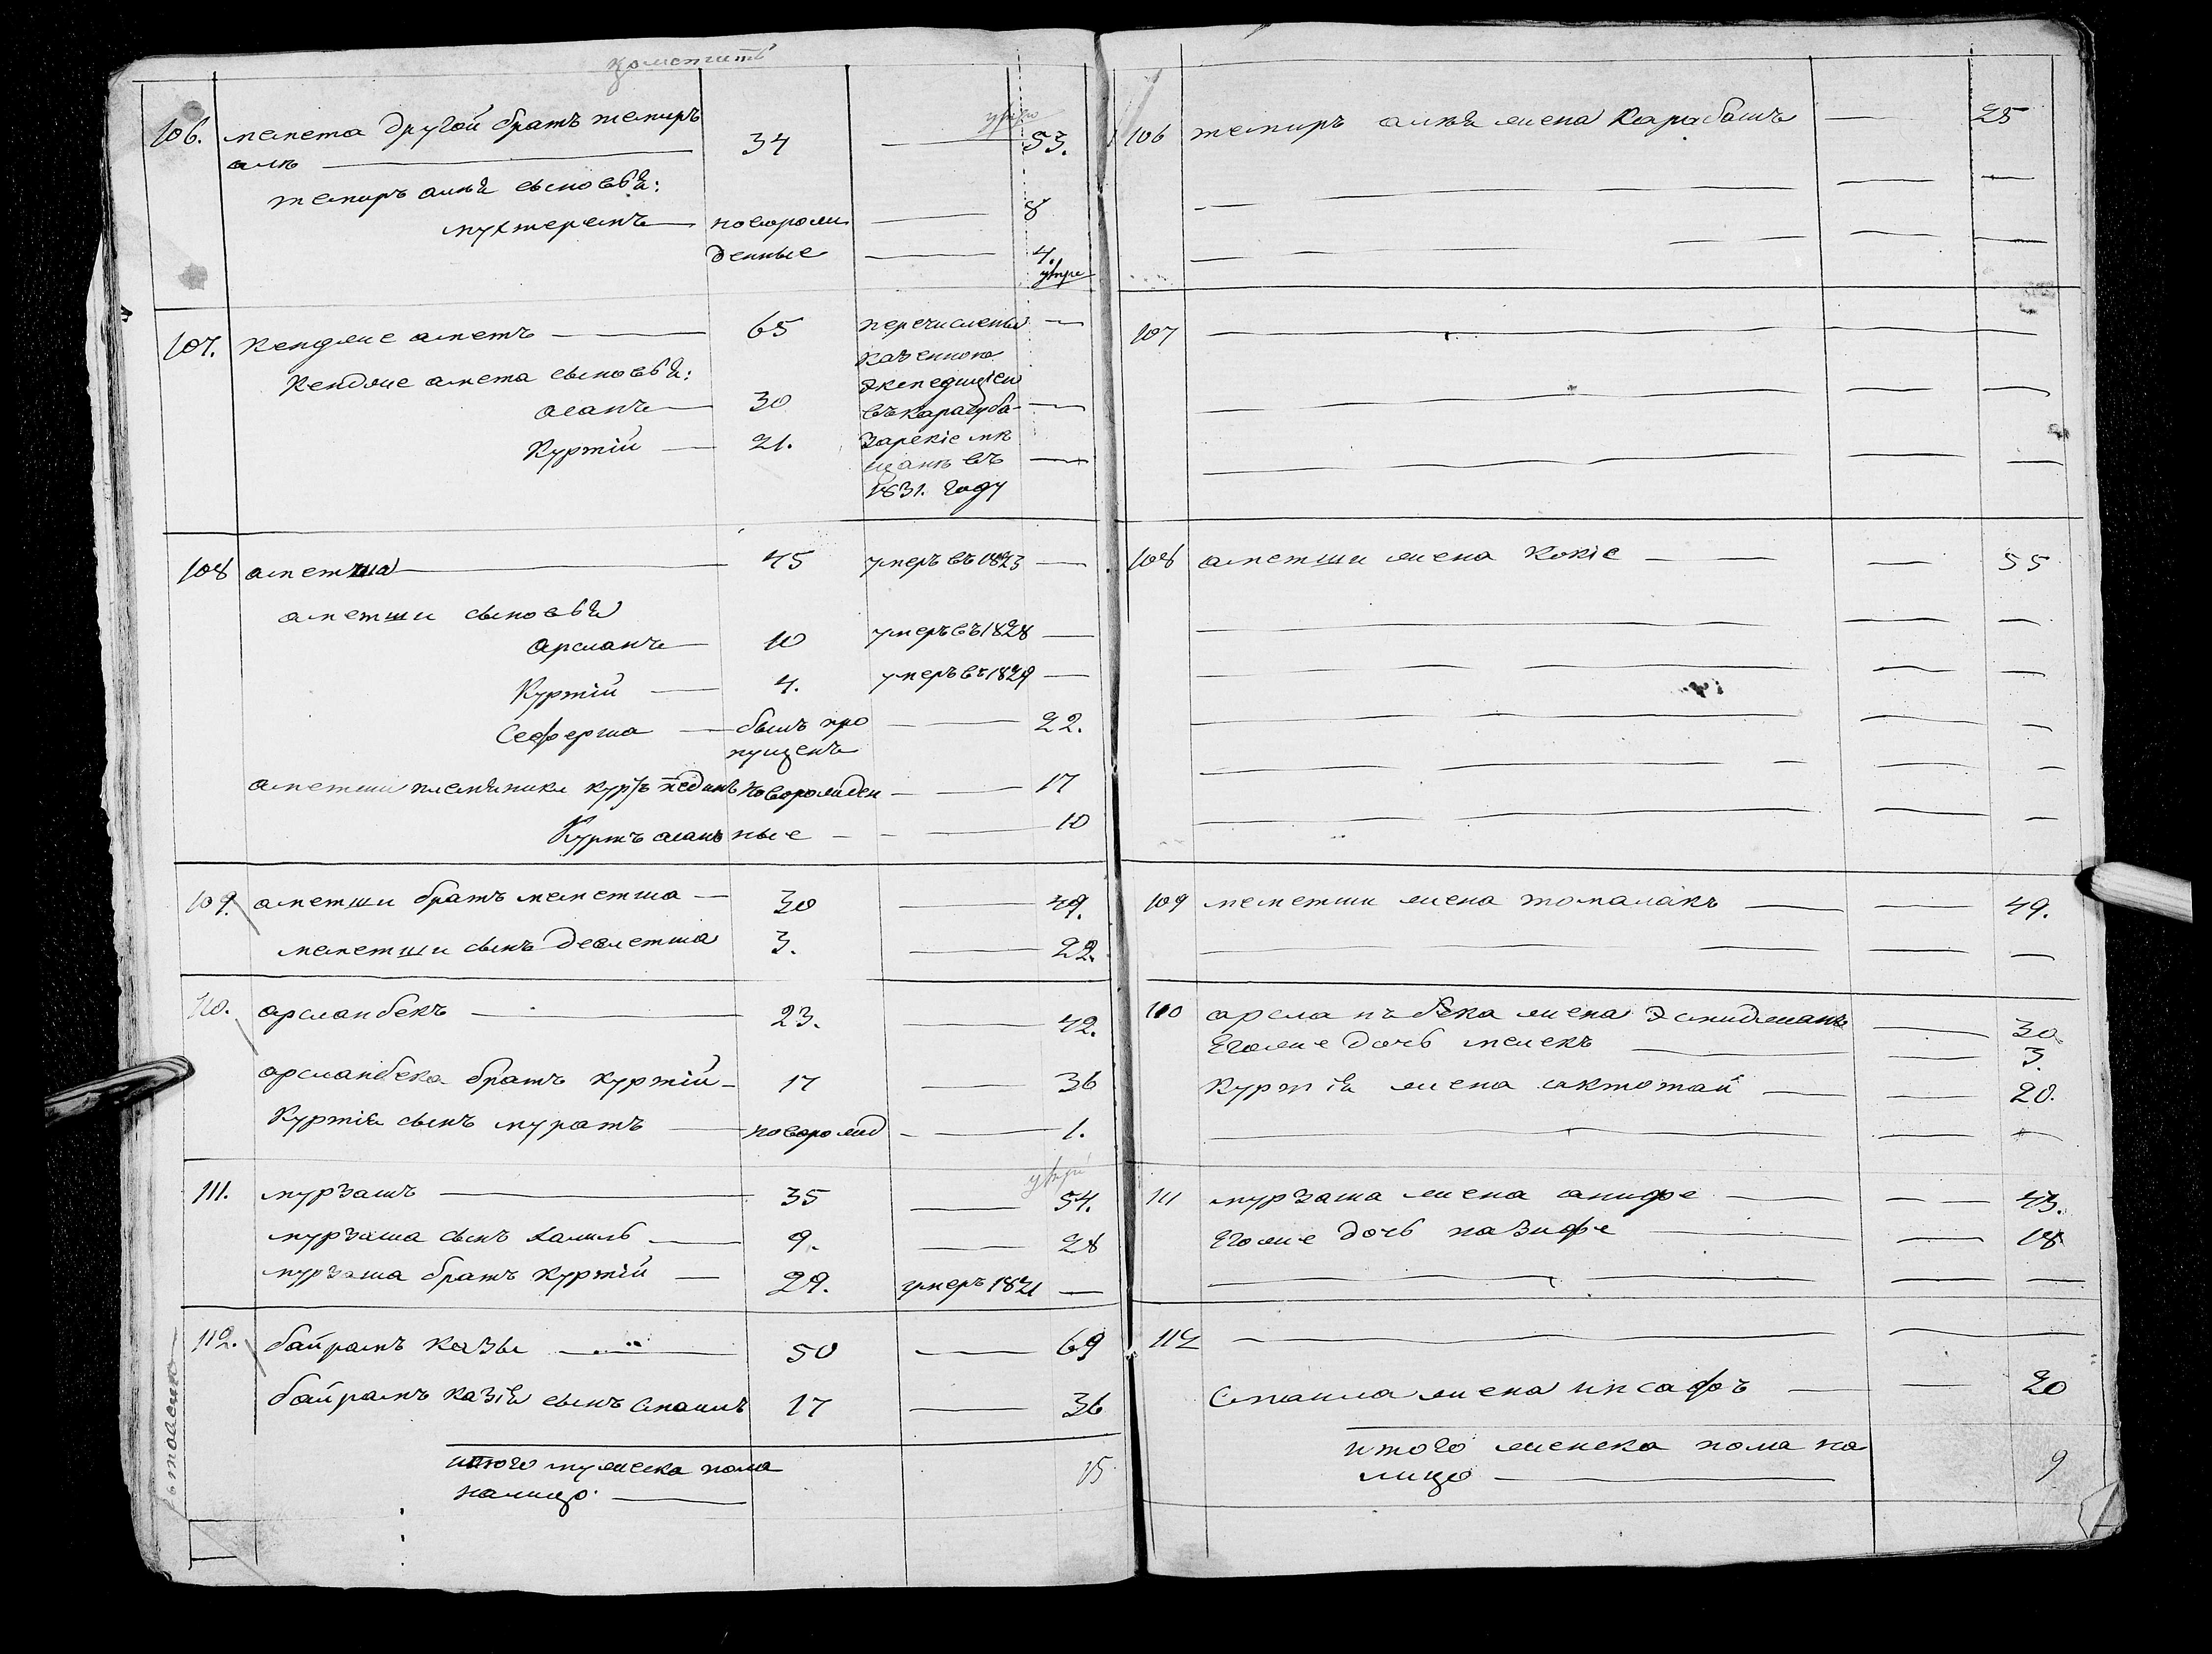 106. мемета другой братъ темиръ 34 — 53.
али —
темиръ алія сыновья:
мухтеремъ — новорож — 8
денные — 4.
107. Кендже аметъ — 65 перечислены —
Кендже амета сыновья: казенною
экспедиціею
асанъ — 30 въ карасуба- —
Куртій — 21. зарскіе мѣ
щане въ —
1831. году
108 аметша — 45 умеръ въ 1823 —
аметши сыновья
арсланъ — 10 умеръ въ 1828 —
Куртій — 4. умеръ въ 1829 —
Сеферша — былъ про — 22.
пущенъ
аметши племянники куртъ новорожден — 17
Куртъ асанъ ные — 10
109. аметши братъ меметша — 30 — 49.
меметши сынъ девлетша 3. — 22.
110. арсланбекъ — 23. — 42.
арсланбека братъ куртій — 17 — 36
Куртія сынъ муратъ — новорожд — 1.
111. мурзашъ — 35 — 54.
мурзаша сынъ халиль — 9. — 28
мурзаша братъ куртій — 29. умеръ 1821 —
112. байрамъ казы — 50 — 69
байрамъ казія сынъ Смаилъ 17 — 36
итого мужеска пола 15
налицо —
106 темиръ алія жена Карабашъ — 25
107 —
108 аметши жена Кокіе — 55
109 меметши жена томалакъ — 49.
110 арсланъ бека жена — 30.
Его же дочь мелекъ — 3.
Куртія жена актотай — 20.
111 мурзаша жена анифе — 43.
Его же дочь назифе — 18
112 —
Смаила жена инсафъ — 20
итого женска пола на 9
лицо —